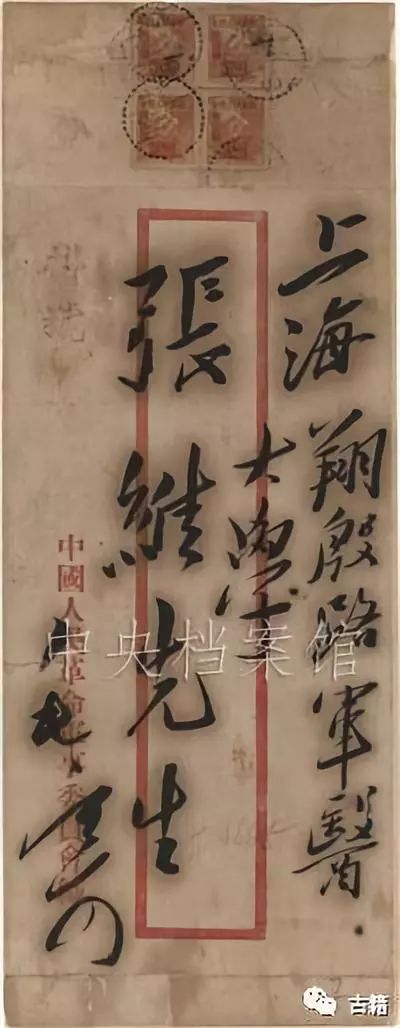 上海翔殷路軍醫
大學
張維先生
中國人民革命軍事委員會
毛
掛號
中央档案馆
古籍